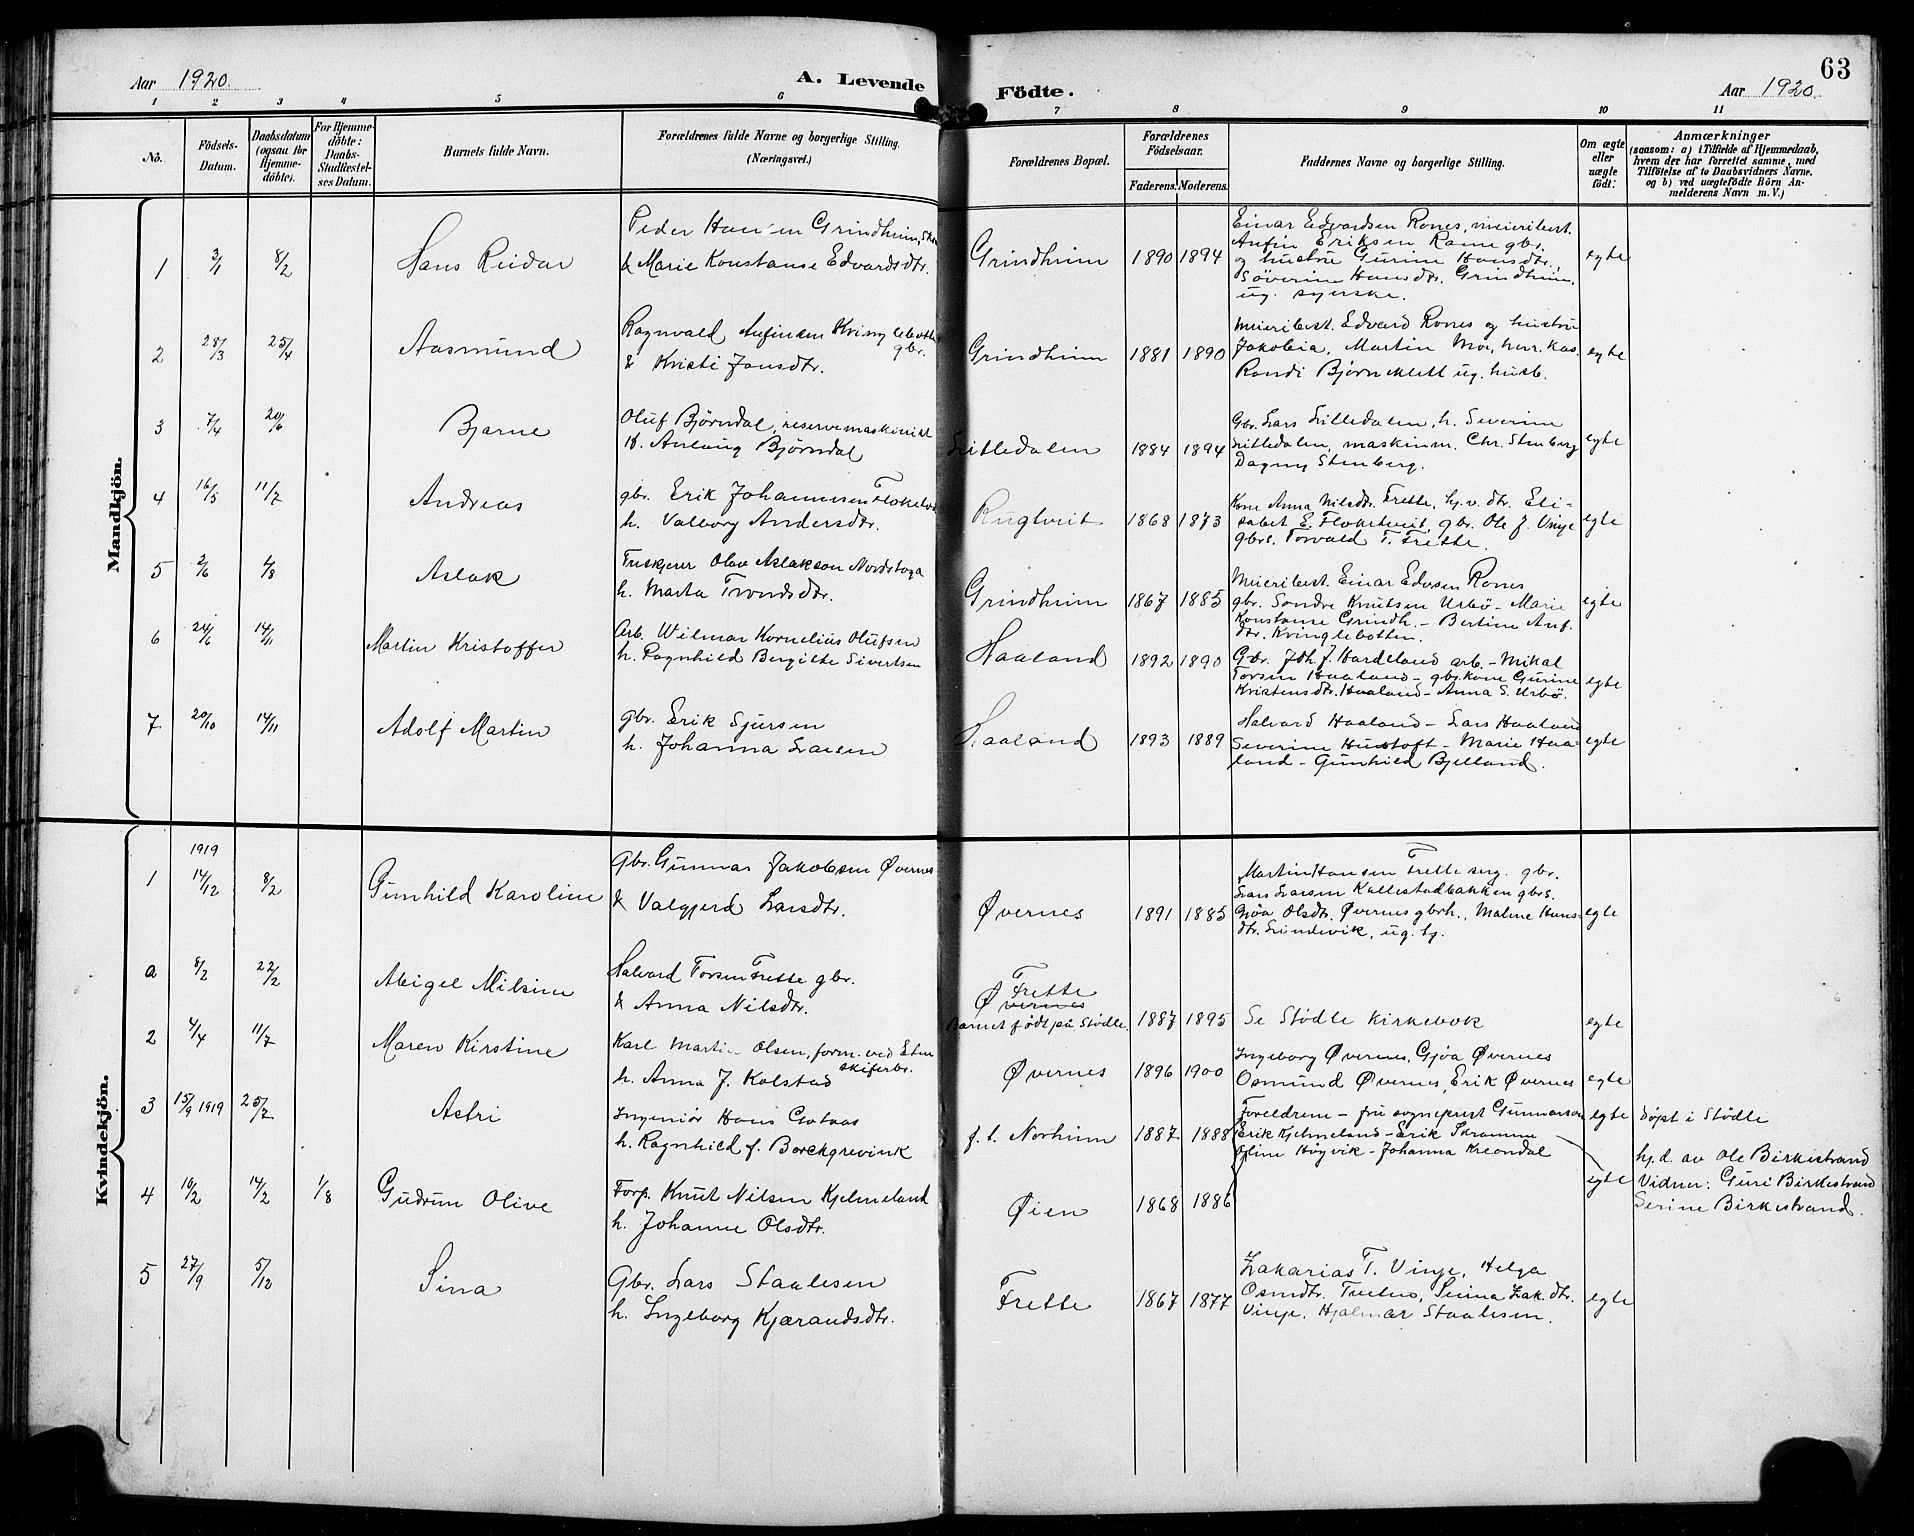 Aar 1920.
A. Levende
Födte.
63
Aar 1920.
1 2 3 4 5 6 7 8 9 10 11
No.
Födsels-
Datum.
Daabsdatum
(ogsaa for
Hjemme-
döbte).
For Hjemme-
döbte:
Daabs-
Stadfæstel-
ses Datum.
Barnets fulde Navn.
Forældrenes fulde Navne og borgerlige Stilling.
(Næringsvei.)
Forældrenes Bopæl.
Forældrenes
Födselsaar.
Faderens. Moderens.
Faddernes Navne og borgerlige Stilling.
Om ægte
eller
uægte
födt.
Anmærkninger
(saasom: a) i Tilfælde af Hjemmedaab,
hvem der har forrettet samme, med
Tilföielse af to Daabsvidners Navne,
og b) ved uægtefödte Börn An-
melderens Navn m. V.)
Mandkjön.
1 3/1 8/2 Hans Reidar
Peder Hansen Grindheim,
& Marie Konstanse Edvardsdtr.
Grindheim 1890 1894
Einar Edvardsen Rones, meieribest.
Anfin Eriksen Rame gbr.
og hustru Gurine Hansdtr.,
Söverine Hansdtr. Grindheim,
ug. syerske.
egte
2 28/3 25/4 Aasmund
Ragnvald Anfinsen Kvinglebotten
gbr.
& Kristi Jonsdtr.
Grindheim 1881 1890
Meieribest. Edvard Rones og hustru
Jakobia, Martin Moe, herr. kas.
Randi Bjørneklett ug. husb.
egte
3 7/4 20/6 Bjarne
Oluf Bjørndal, reservemaskinist
H. Anlaug Bjørndal
Litledalen 1884 1894
Gbr. Lars Litledalen, h. Severine
Litledalen, maskinm. Chr. Stenberg
Dagny Stenberg.
egte
4 16/5 11/7 Andreas
gbr. Erik Johannesen Floketveit
h. Valborg Andersdtr.
Rugtveit 1868 1873
Kone Anna Nilsdtr. Frette, hj.v. dtr. Eli-
sabet E. Floketveit, gbr. Ole J. Vinje
gbrs. Torvald T. Frette.
egte
5 2/6 1/8 Aslak
Træskjerer Olav Aslakson Nordstoga
h. Marta Trondsdtr.
Grindheim 1867 1885
Meieribest. Einar Edvsen Rones
gbr. Sondre Knutsen Urbö - Marie
Konstanse Grindh. - Bertine Anf.
dtr. Kvinglebotten.
egte
6 24/6 14/11 Martin Kristoffer
Arb. Wilmar Kornelius Olufsen
h. Ragnhild Bergitte Sivertsen
Haaland 1892 1890
Gbr. Joh. J. Hardeland arb. - Mikal
Torsen Haaland - gbr.kone Gurine
Kristensdtr. Haaland - Anna S. Urbö.
egte
7 20/10 14/11 Adolf Martin
gbr. Erik Sjursen
h. Johanna Larsen
Haaland 1893 1889
Halvard Haaland - Lars Haaland
Severine Hustoft - Marie Haa-
land - Gunhild Bjelland.
egte
Kvindekjön.
1919
1 14/12 8/2 Gunhild Karoline
Gbr. Gunnar Jakobsen Øvernes
& Valgjerd Larsdtr.
Øvernes 1891 1885
Martin Hansen Frette ung. gbr.
Lars Larsen Kallestadbakken gbrs.
Gjøa Olsdtr. Øvernes gbrh., Malene Hans-
dtr. Lindevik, ug. hj.
egte
a 8/2 22/2 Abigel Milsine
Halvard Torsen Frette gbr.
& Anna Nilsdtr.
Frette
Øvernes
Barnet født på Stødle. 1887 1895
Se Stødle kirkebok
egte
2 4/4 11/7 Maren Kirstine
Karl Martin Olsen, form. ved Etne
skiferbr.
h. Anna J. Kolstad
Øvernes 1896 1900
Ingeborg Øvernes, Gjøa Øvernes
Osmund Øvernes, Erik Øvernes
egte
3 15/9 1919 25/7 Astri
Ingeniør Hans
h. Ragnhild f. Borchgrevink
f. t. Norheim 1887 1888
Foreldrene - fru sogneprest Gunnarson
egte døpt i Stødle
Erik Kjelmeland - Erik Skramme
Oline Høyvik - Johanna Kreondal
4 10/2 14/2 1/8 Gudrun Olive
Forp. Knut Nilsen Kjelmeland
h. Johanne Olsdtr.
Øien 1868 1886
egte
hj.d. av Ole Birkestrand
Vidner: Guri Birkestrand
Serine Birkestrand.
5 27/9 5/12 Sina
Gbr. Lars Staalesen
h. Ingeborg Kjærandsdtr.
Frette 1867 1877
Zakarias T. Vinje, Helga
Osmdtr. Tveiten, Sinna Zak.dtr.
Vinje, Hjalmar Staalesen.
egte